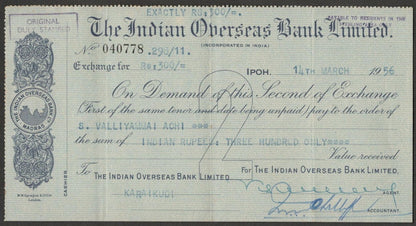 EXACTLY RS:300/=.
ORIGINAL
DULY STAMPED
The Indian Overseas Bank Limited.
PAYABLE TO RESIDENTS IN THE
STERLING AREA ONLY
(INCORPORATED IN INDIA)
No. 040778 .298/11.
Exchange for RS:300/=. IPOH, 14TH MARCH 1956
On Demand of this Second of Exchange
(First of the same tenor and date being unpaid) pay to the order
of S. VALLIYAMMAI ACHI
the sum of INDIAN RUPEES THREE HUNDRED ONLY
Value received
To THE INDIAN OVERSEAS BANK LIMITED For THE INDIAN OVERSEAS BANK LIMITED
KARAIKUDI
AGENT.
ACCOUNTANT.
CASHIER
THE INDIAN OVERSEAS BANK LTD
MADRAS
London.